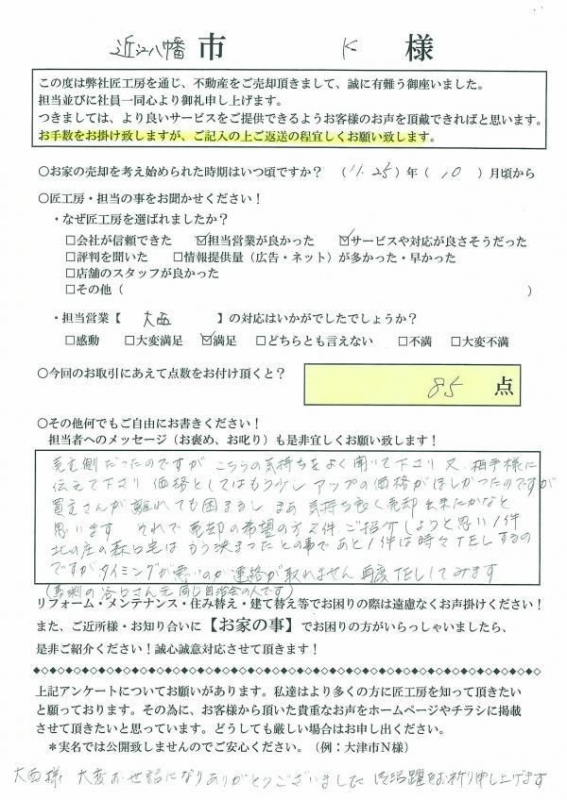 近江八幡 市 K 様
この度は弊社匠工房を通じ、不動産をご売却頂きまして、誠に有難う御座いました。
担当並びに社員一同心より御礼申し上げます。
つきましては、より良いサービスをご提供できるようお客様のお声を頂蔵できればと思います。
お手数をお掛け致しますが、ご記入の上ご返送の程宜しくお願い致します。
○お家の売却を考え始められた時期はいつ頃ですか？ （11.25）年（10）月頃から
○匠工房・担当の事をお聞かせください！
・なぜ匠工房を選ばれましたか？
□会社が信頼できた ☑担当営業が良かった ☑サービスや対応が良さそうだった
□評判を聞いた □情報提供量（広告・ネット）が多かった・早かった
□店舗のスタッフが良かった
□その他（ ）
・担当営業【 大西 】の対応はいかがでしたでしょうか？
□感動 □大変満足 ☑満足 □どちらとも言えない □不満 □大変不満
○今回のお取引にあえて点数をお付け頂くと？ 85 点
○その他何でもご自由にお書きください！
担当者へのメッセージ（お褒め、お叱り）も是非宜しくお願い致します！
売主側だったのですが こちらの気持ちをよく聞いて下さり 又、相手様に
伝えて下さり 価格としてはもう少しアップの価格がほしかったのですが
買主さんが離れても困まるし まあ 気持ち良く売却出来たかなと
思います それで売却の希望の方2件ご紹介しようと思い1件
北の庄の森口宅はもう決まったとの事で あと1件は時々TELするの
ですが タイミングが悪いのか連絡が取れません 再度TELしてみます
谷口さん宅 同じ自治会の人です)
リフォーム・メンテナンス・住み替え・建て替え等でお困りの際は遠慮なくお声掛けください！
また、ご近所様・お知り合いに【お家の事】でお困りの方がいらっしゃいましたら、
是非ご紹介ください！誠心誠意対応させて頂きます！
上記アンケートについてお願いがあります。私達はより多くの方に匠工房を知って頂きたい
と願っております。その為に、お客様から頂いた貴重なお声をホームページやチラシに掲載
させて頂きたいと思っています。どうしても厳しい場合はお申し出ください。
＊実名では公開致しませんのでご安心ください。（例：大津市N様）
大西様 大変お世話になりありがとうございました ご活躍をお祈り申し上げます